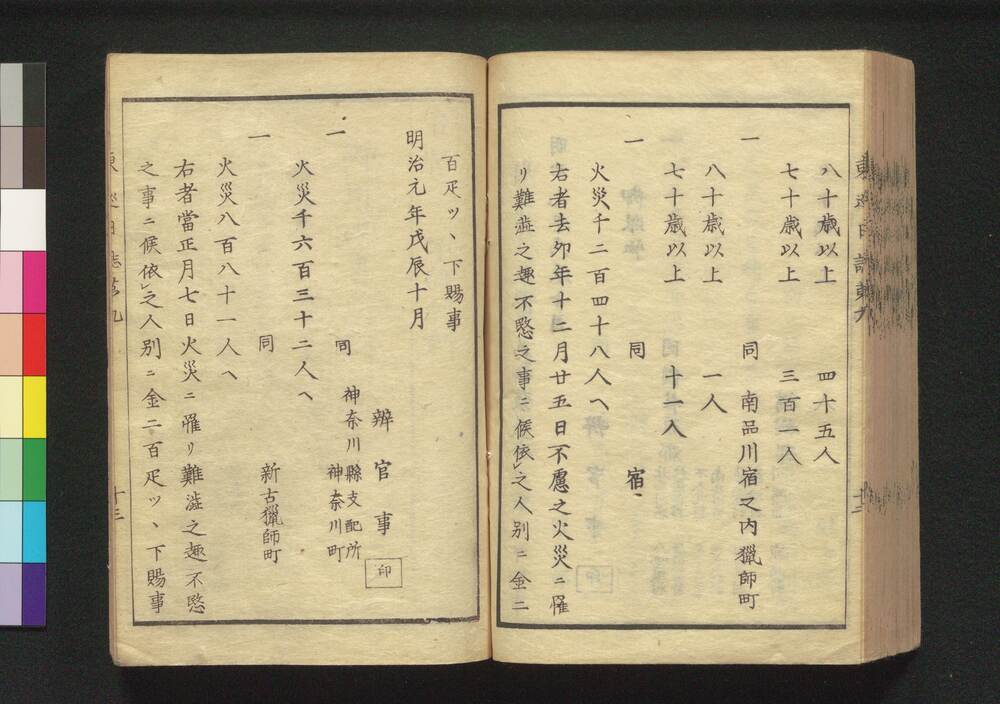 八十歳以上　四十五人
七十歳以上　三百一人
一　同　南品川宿之内獵師町
八十歳以上　一人
七十歳以上　十一人
一　同　宿
火災千二百四十八人ヘ
右者去夘年十二月廿五日不慮之火災ニ罹
リ難澁之趣不愍之事ニ候依之人別ニ金二
百疋ツヽ下賜事
明治元年戊辰十月
辨官事　印
一　同　神奈川縣支配所
神奈川町
火災千六百三十二人ヘ
一　同　新古獵師町
火災八百八十一人ヘ
右者當正月七日火災ニ罹リ難澁之趣不愍
之事ニ候依之人別ニ金二百疋ツヽ下賜事
十三